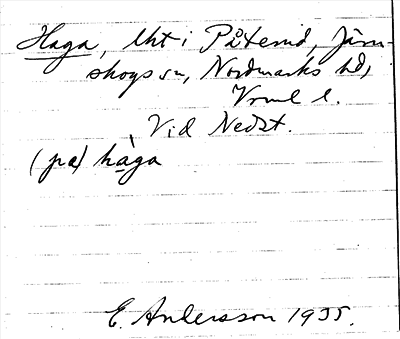 Haga, lht i Påterud, Järn-
skogs sn, Nordmarks hd,
Vrml l.
Vid Nedst.
(på) hàga
E. Andersson 1935.